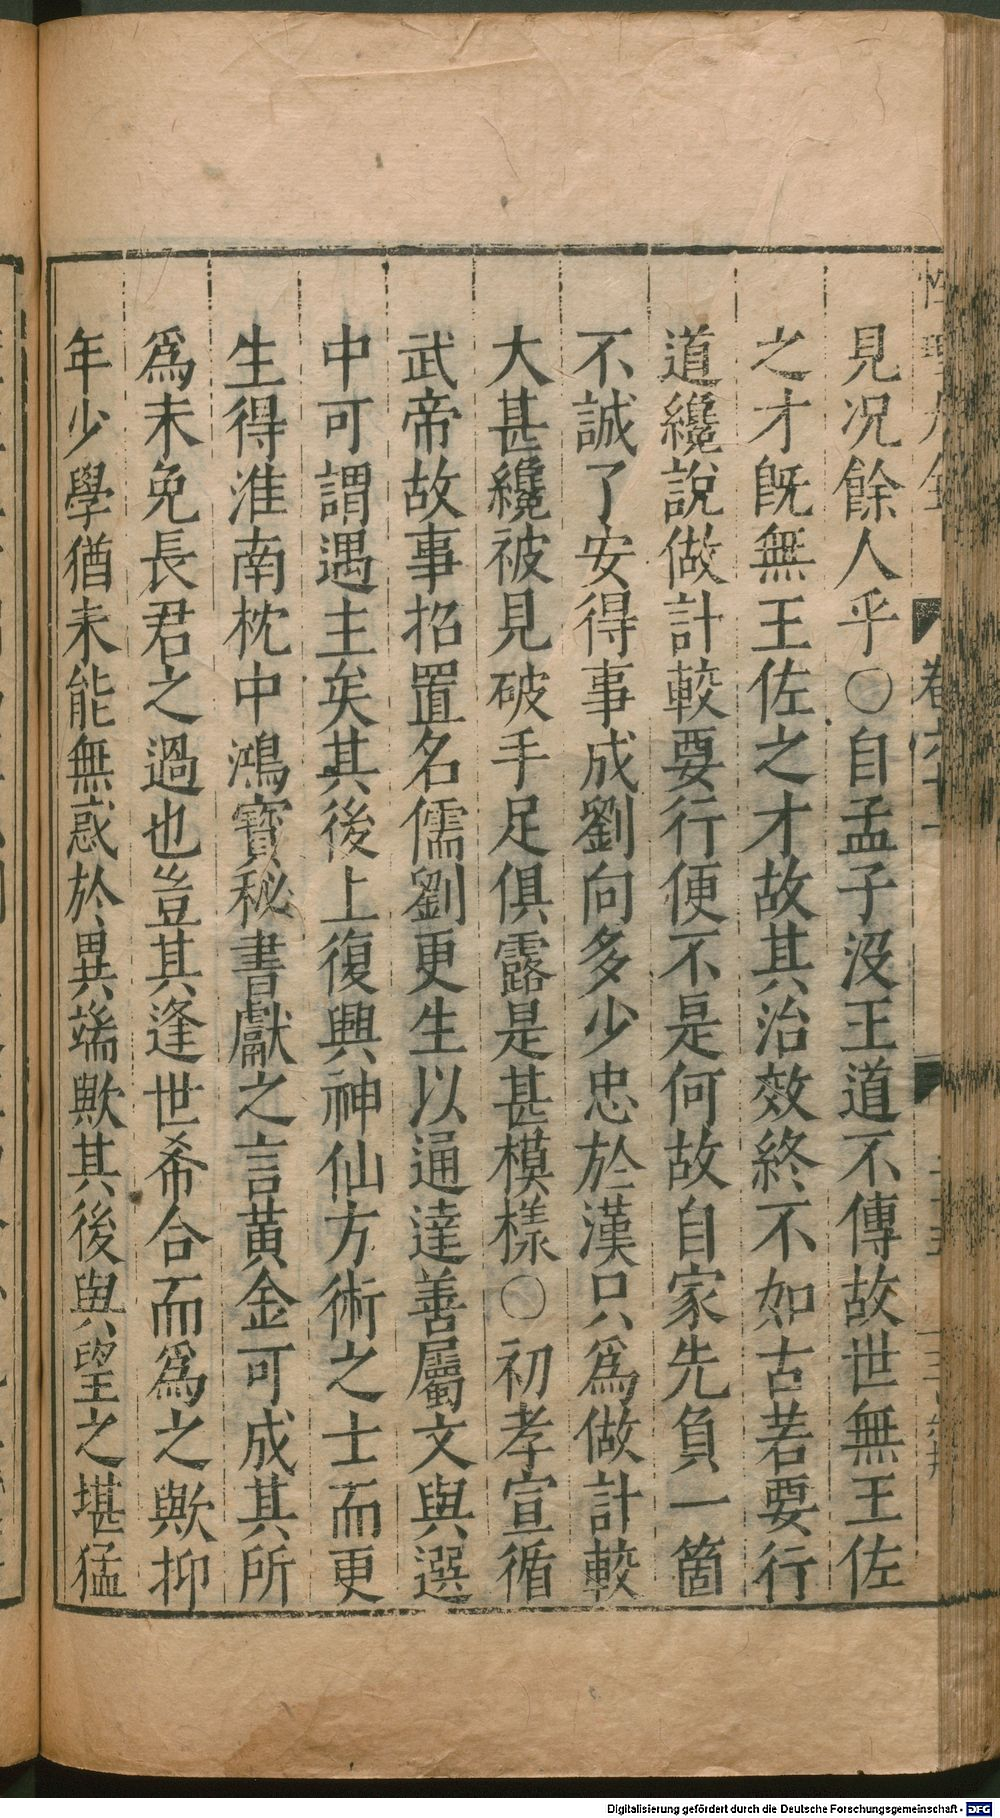 見况餘人乎○自孟子没王道不傳故世無王佐
之才既無王佐之才故其治效終不如古若要行
道纔說做計較要行便不是何故自家先負一箇
不誠了安得事成劉向多少忠於漢只爲做計較
大甚纔被見破手足俱露是甚模樣○初孝宣循
武帝故事招置名儒劉更生以通達善屬文與選
中可謂遇主矣其後上復興神仙方術之士而更
生得淮南枕中鴻寶秘書獻之言黃金可成其所
爲未免長君之過也豈其逢世希合而爲之歟抑
年少學猶未能無惑於異端歟其後與望之堪猛
卷六十一
Digitalisierung gefördert durch die Deutsche Forschungsgemeinschaft - DFG